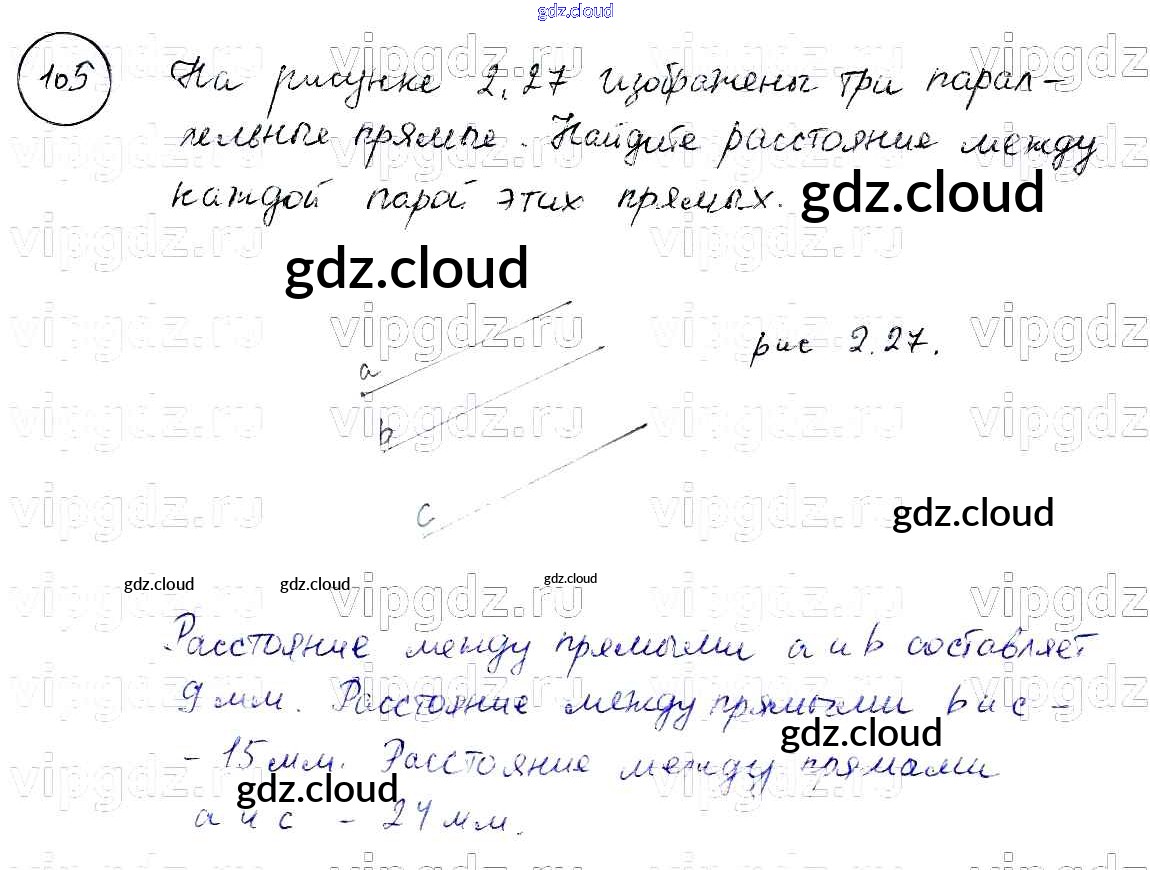 gdz.cloud
105 На рисунке 2.27 изображены три парал-
лельные прямые. Найдите расстояние между
каждой парой этих прямых. gdz.cloud
gdz.cloud
vipgdz.ru vipgdz.ru vipgdz.ru vipgdz
рис 2.27.
a
b
c
gdz.cloud
gdz.cloud gdz.cloud gdz.cloud
Расстояние между прямыми a и b составляет
9 мм. Расстояние между прямыми b и c -
- 15 мм. Расстояние между прямами
gdz.cloud
gdz.cloud
a и c - 24 мм.